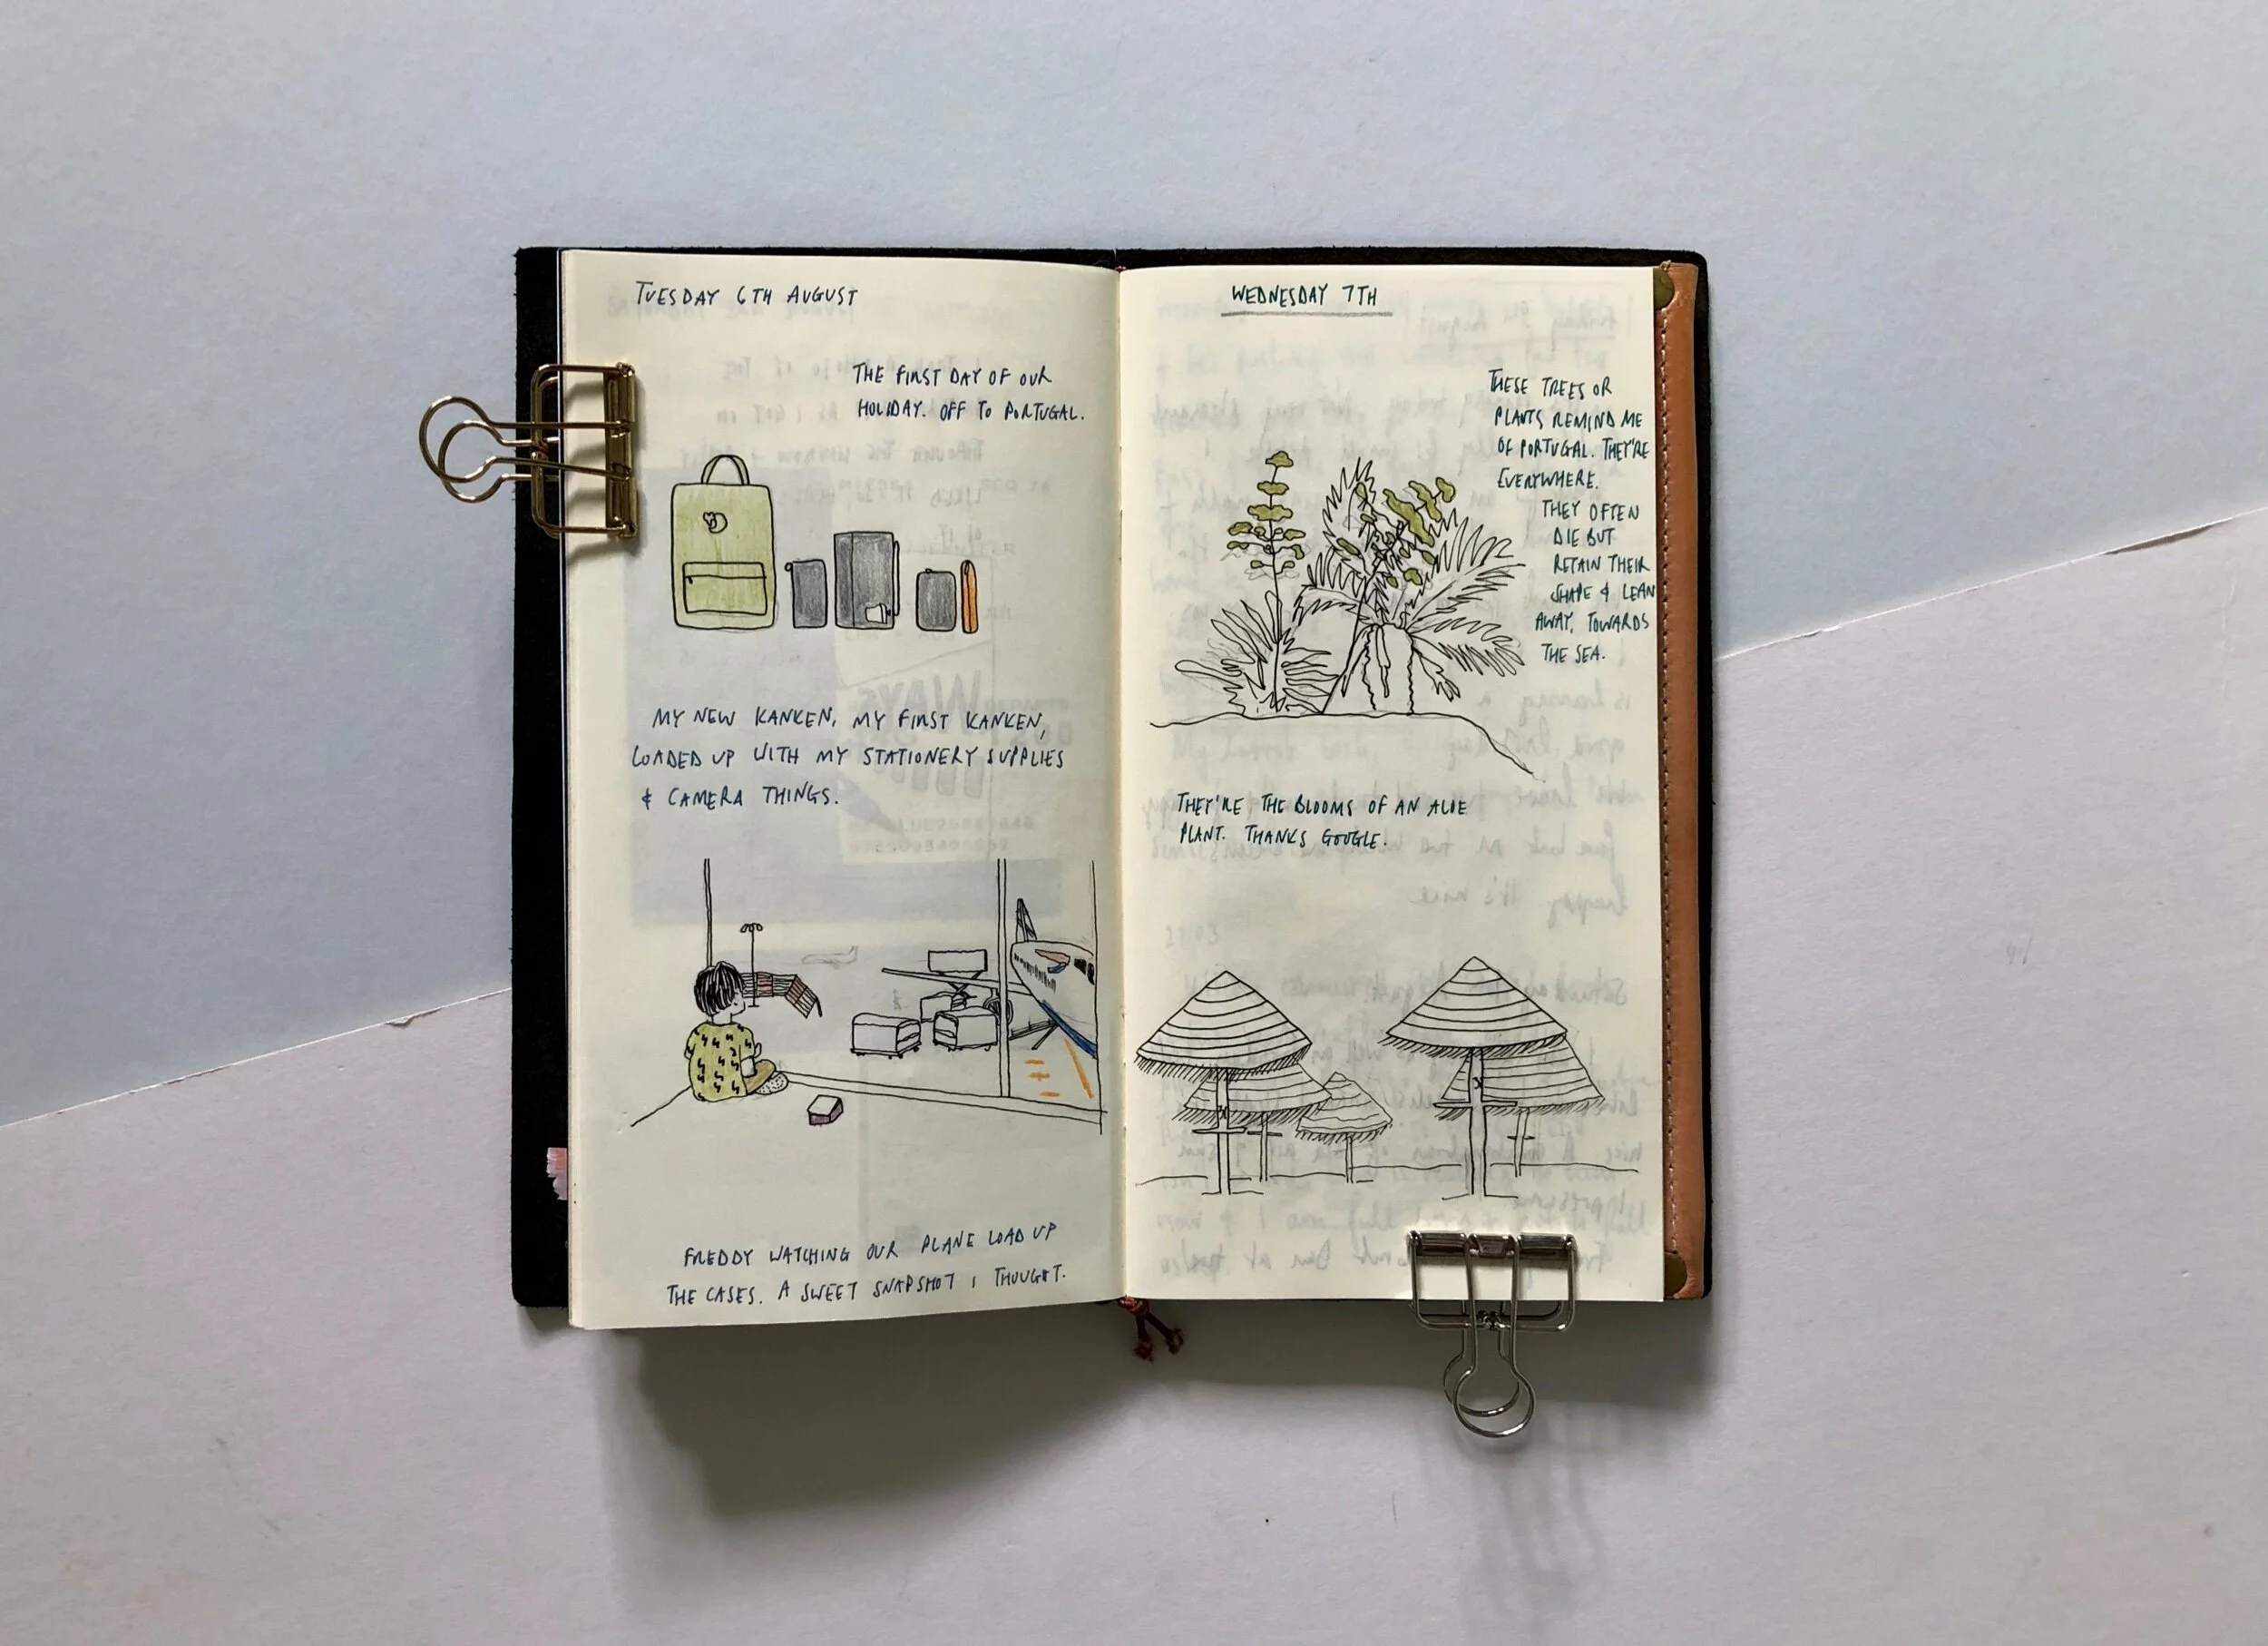 TUESDAY 6TH AUGUST
THE FIRST DAY OF OUR
HOLIDAY. OFF TO PORTUGAL.
MY NEW KANKEN, MY FIRST KANKEN,
LOADED UP WITH MY STATIONERY SUPPLIES
& CAMERA THINGS.
FREDDY WATCHING OUR PLANE LOAD UP
THE CASES. A SWEET SNAPSHOT I THOUGHT.
WEDNESDAY 7TH
THESE TREES OR
PLANTS REMIND ME
OF PORTUGAL. THEY'RE
EVERYWHERE.
THEY OFTEN
DIE BUT
RETAIN THEIR
SHAPE & LEAN
AWAY, TOWARDS
THE SEA.
THEY'RE THE BLOOMS OF AN ALOE
PLANT. THANKS GOOGLE.